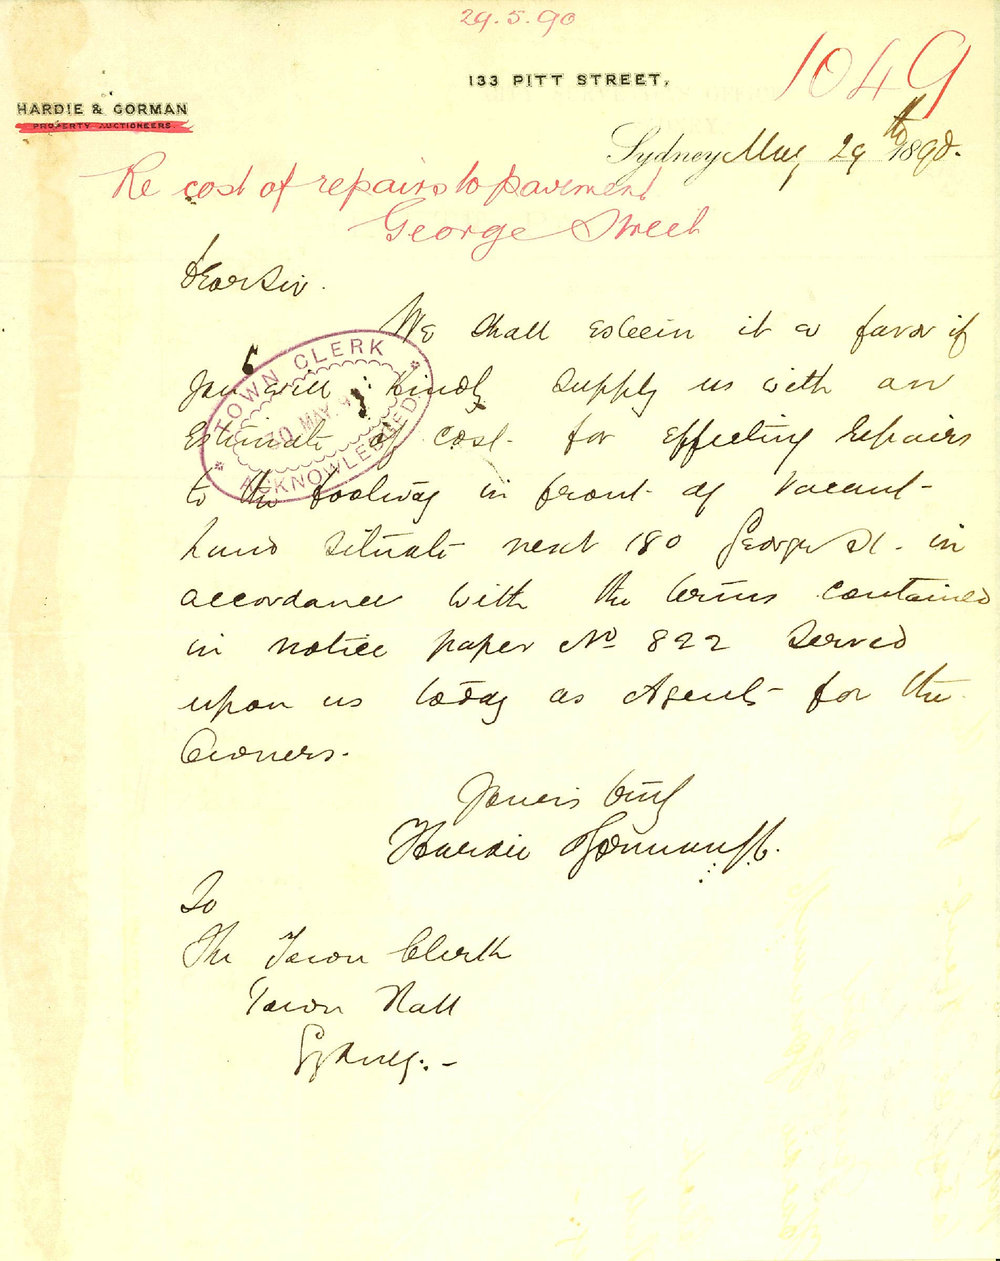 29.5.90
133 PITT STREET,
1049
HARDIE & GORMAN
PROPERTY AUCTIONEERS
Sydney May 29th 1890.
Re cost of repairs to pavement
George Street
Dear Sir.
We shall esteem it a favor if
you will kindly supply us with an
Estimate of cost for effecting repairs
to the footway in front of Vacant
land situate next 180 George St. in
accordance with the terms contained
in notice paper No 822 served
upon us today as Agents for the
Owners.
TOWN CLERK
30 MAY
ACKNOWLEDGED
Yours truly
Hardie & Gorman
To
The Town Clerk
Town Hall
Sydney.